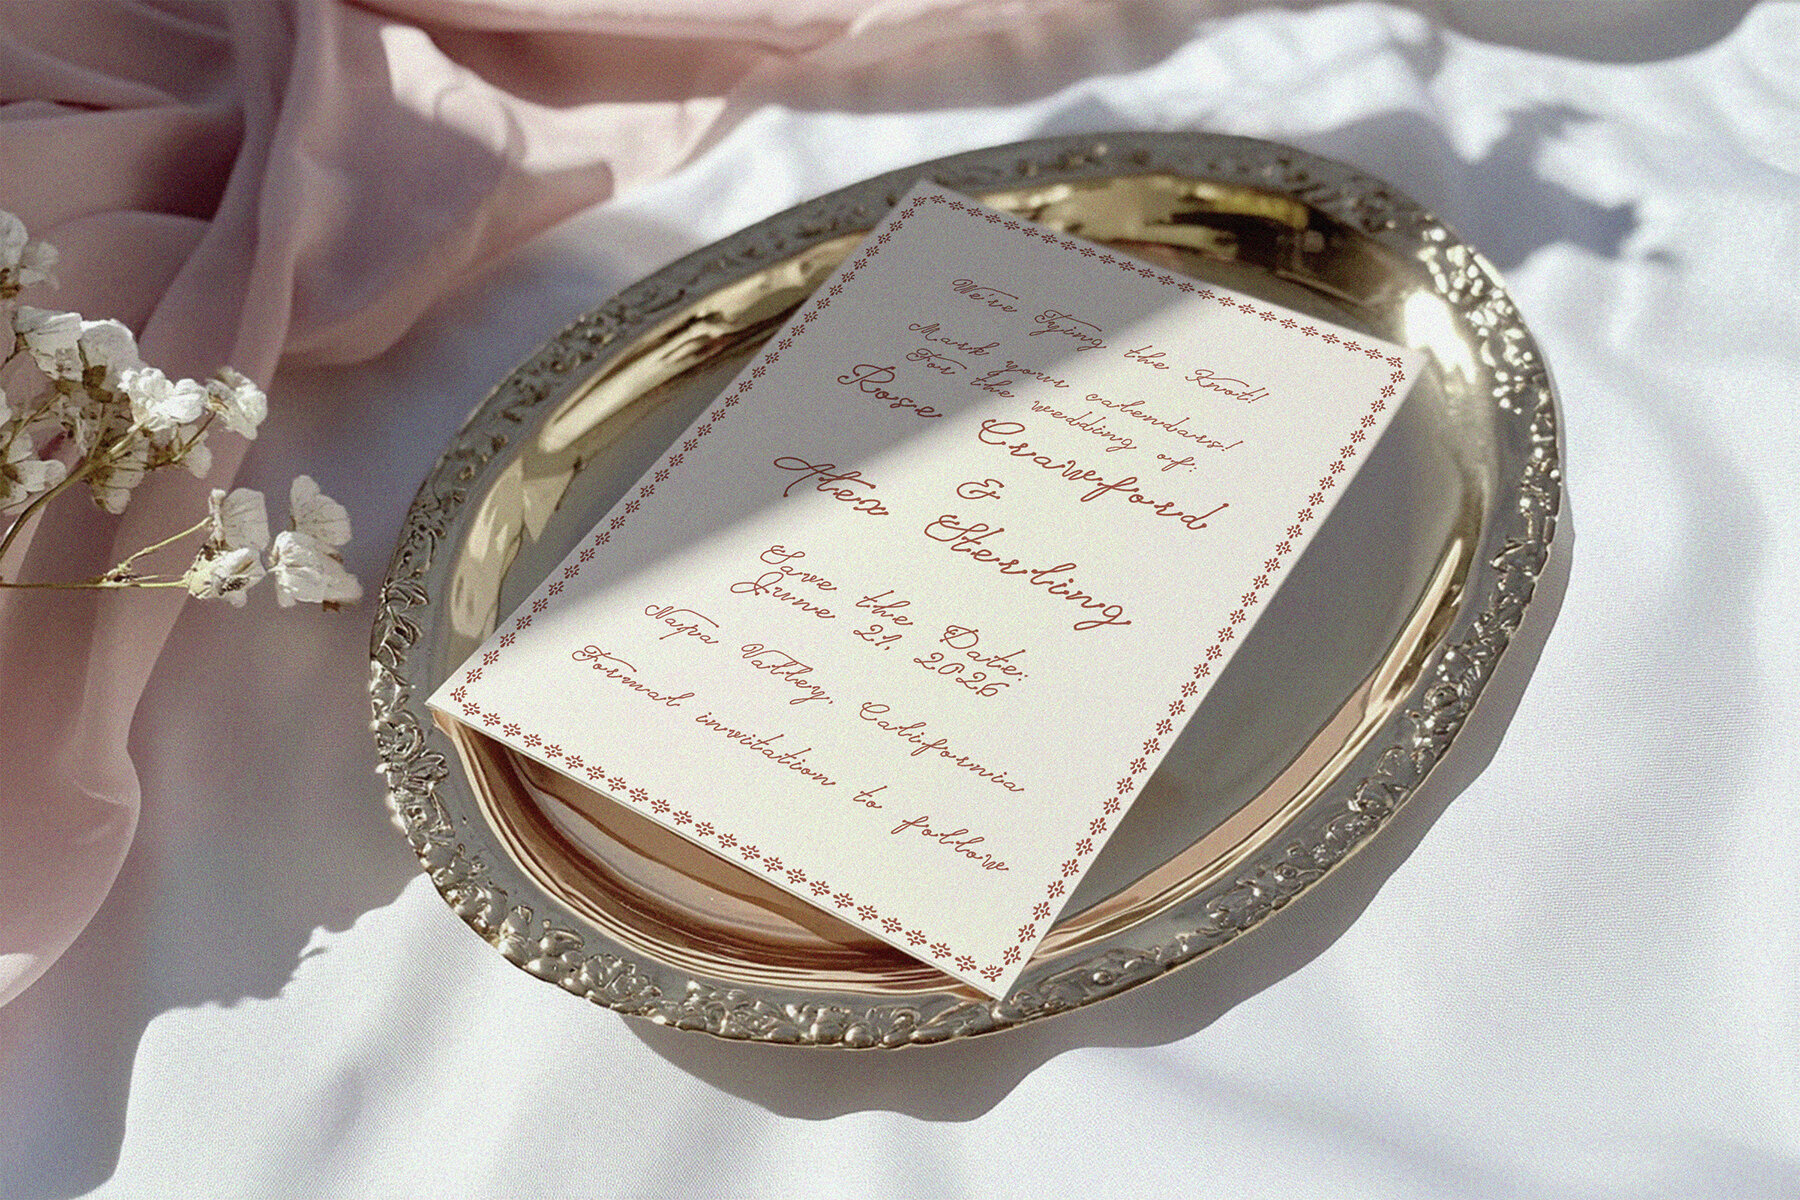 We're Tying the Knot!
Mark your calendars!
For the wedding of:
Rose Crawford
&
Alex Sterling
Save the Date:
June 21, 2026
Napa Valley, California
Formal invitation to follow